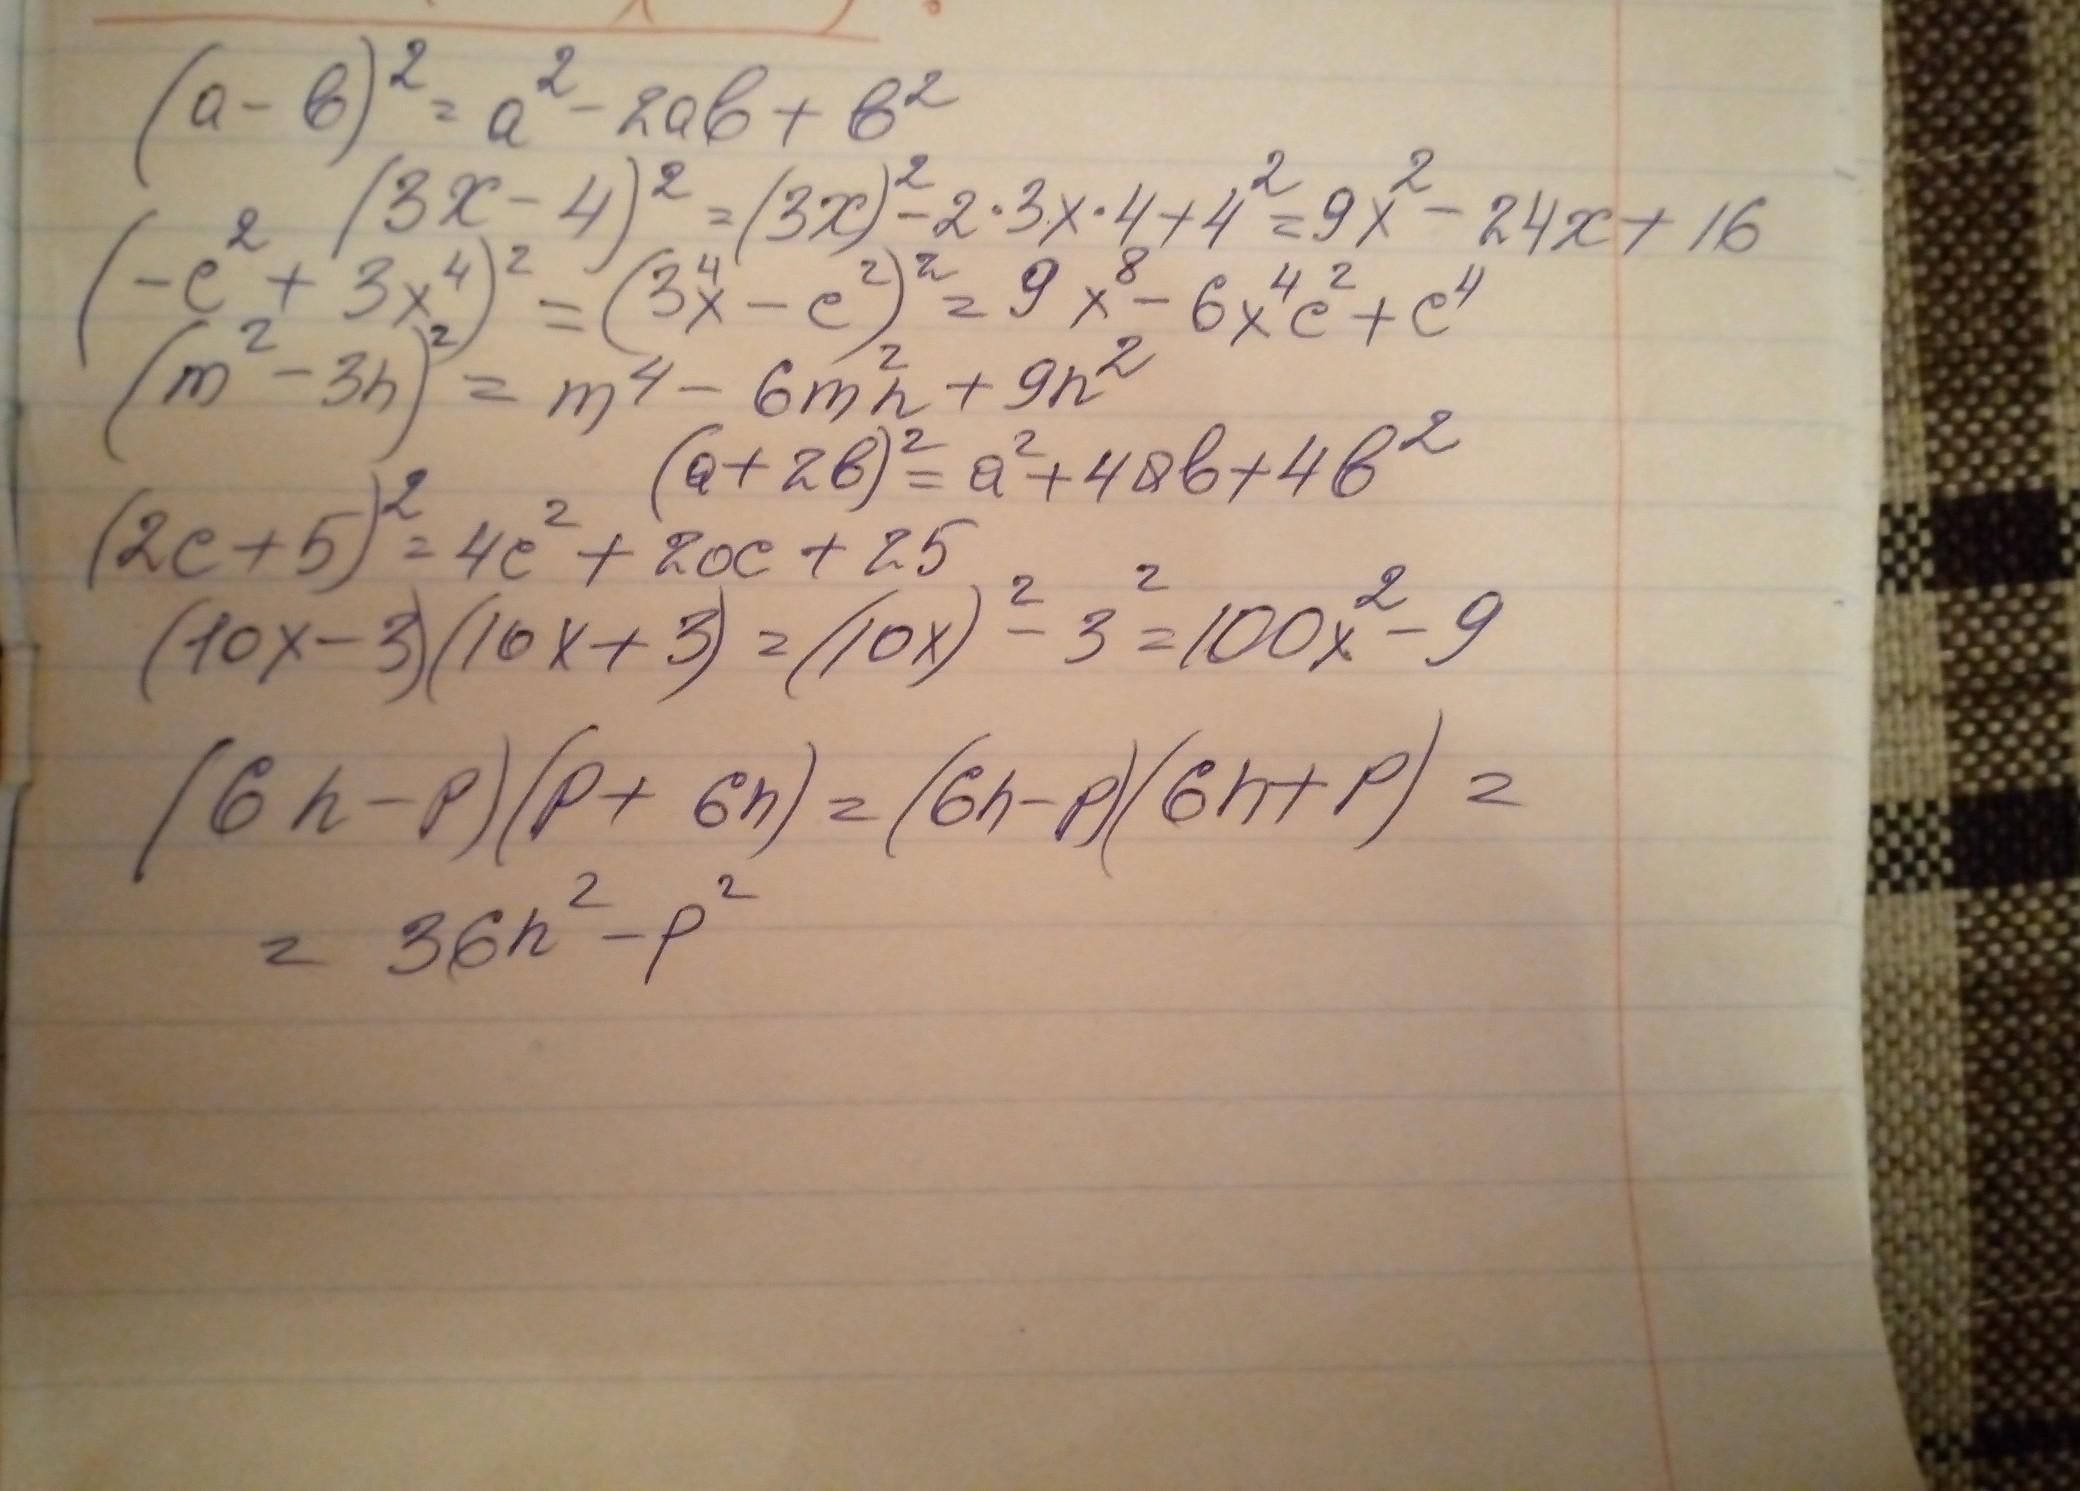 (a-в)² = a² - 2aв + в²
(3x - 4)² = (3x)² - 2·3x·4 + 4² = 9x² - 24x + 16
(-c² + 3x⁴)² = (3x⁴ - c²)² = 9x⁸ - 6x⁴c² + c⁴
(m² - 3n)² = m⁴ - 6m²n + 9n²
(a + 2в)² = a² + 4aв + 4в²
(2c + 5)² = 4c² + 20c + 25
(10x - 3)(10x + 3) = (10x)² - 3² = 100x² - 9
(6n - p)(p + 6n) = (6n - p)(6n + p) =
= 36n² - p²